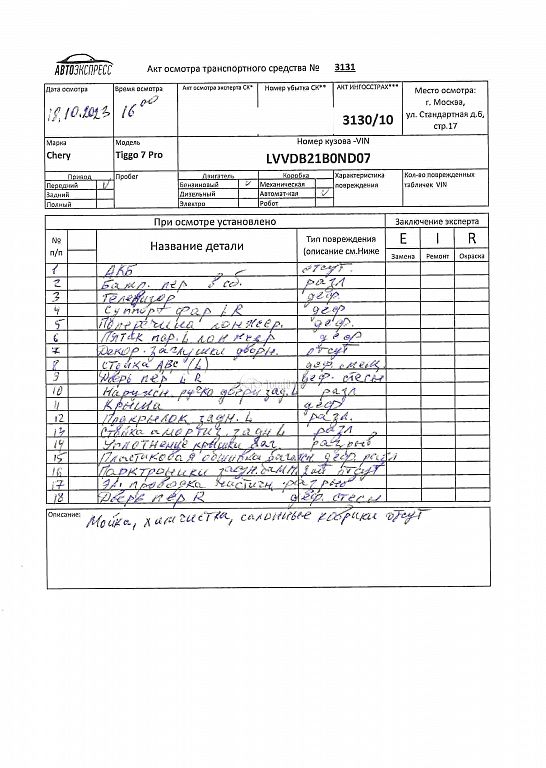 АВТОЭКСПРЕСС
Акт осмотра транспортного средства № 3131
Дата осмотра Время осмотра Акт осмотра эксперта СК* Номер убытка СК** АКТ ИНГОССТРАХ*** Место осмотра:
18.10.2023 16 00 3130/10 г. Москва,
ул. Стандартная д.6,
стр.17
Марка Модель Номер кузова -VIN
Chery Tiggo 7 Pro LVVDB21B0ND07
Привод Пробег Двигатель Коробка Характеристика повреждения Кол-во поврежденных табличек VIN
Передний V Бензиновый V Механическая
Задний Дизельный Автомат-ная V
Полный Электро Робот
При осмотре установлено Заключение эксперта
№ п/п Название детали Тип повреждения (описание см.Ниже E I R
Замена Ремонт Окраска
1 АКБ отсут.
2 Бамп. пер в сб. разл
3 Телевизор деф.
4 Суппорт фар L R деф
5 Поперечина лонжер. деф.
6 Пятак пер. L лонжер деф
7 Декор. заглушки дворн. отсут
8 стойка АВС (L) деф смещ
9 Дверь пер L R деф. стесы
10 Наружн. ручка двери зад. L разл
11 Крыша деф
12 Подкрылок задн. L разл.
13 Стойка амортиз. задн L разл
14 Уплотнение крышки баг. разрыв
15 Пластиковая обшивка багажн деф. разл
16 Парктроники задн. бамп. отсут
17 Эл. проводка частичн. разрыв
18 Дверь пер R деф. стесы
Описание: Мойка, химчистка, салонные коврики отсут